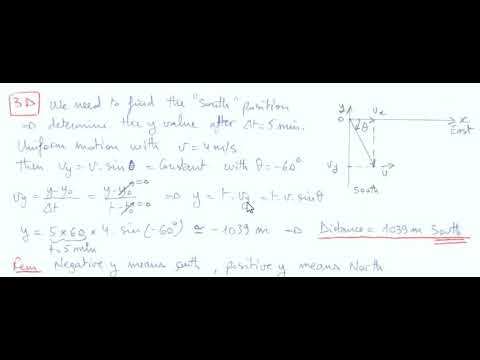 3D We need to find the "South" position
⇒ determine the y value after Δt = 5 min.
Uniform motion with v = 4 m/s
Then vy = v. sin θ = Constant with θ = -60°
vy = (y - y0)/Δt = (y - y0)/(t - t0) ⇒ y = t. vy = t. v. sin θ
y = 5×60 × 4. sin(-60°) ≃ -1039 m ⇒ Distance = 1039 m South
t. 5 min
Rem Negative y means South, positive y means North
y
0 vx x
θ East
vy v
South